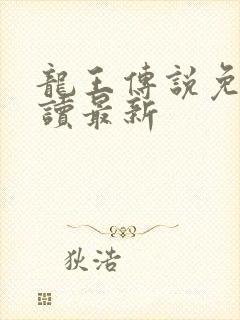 龍王傳說免
讀最新
狄浩